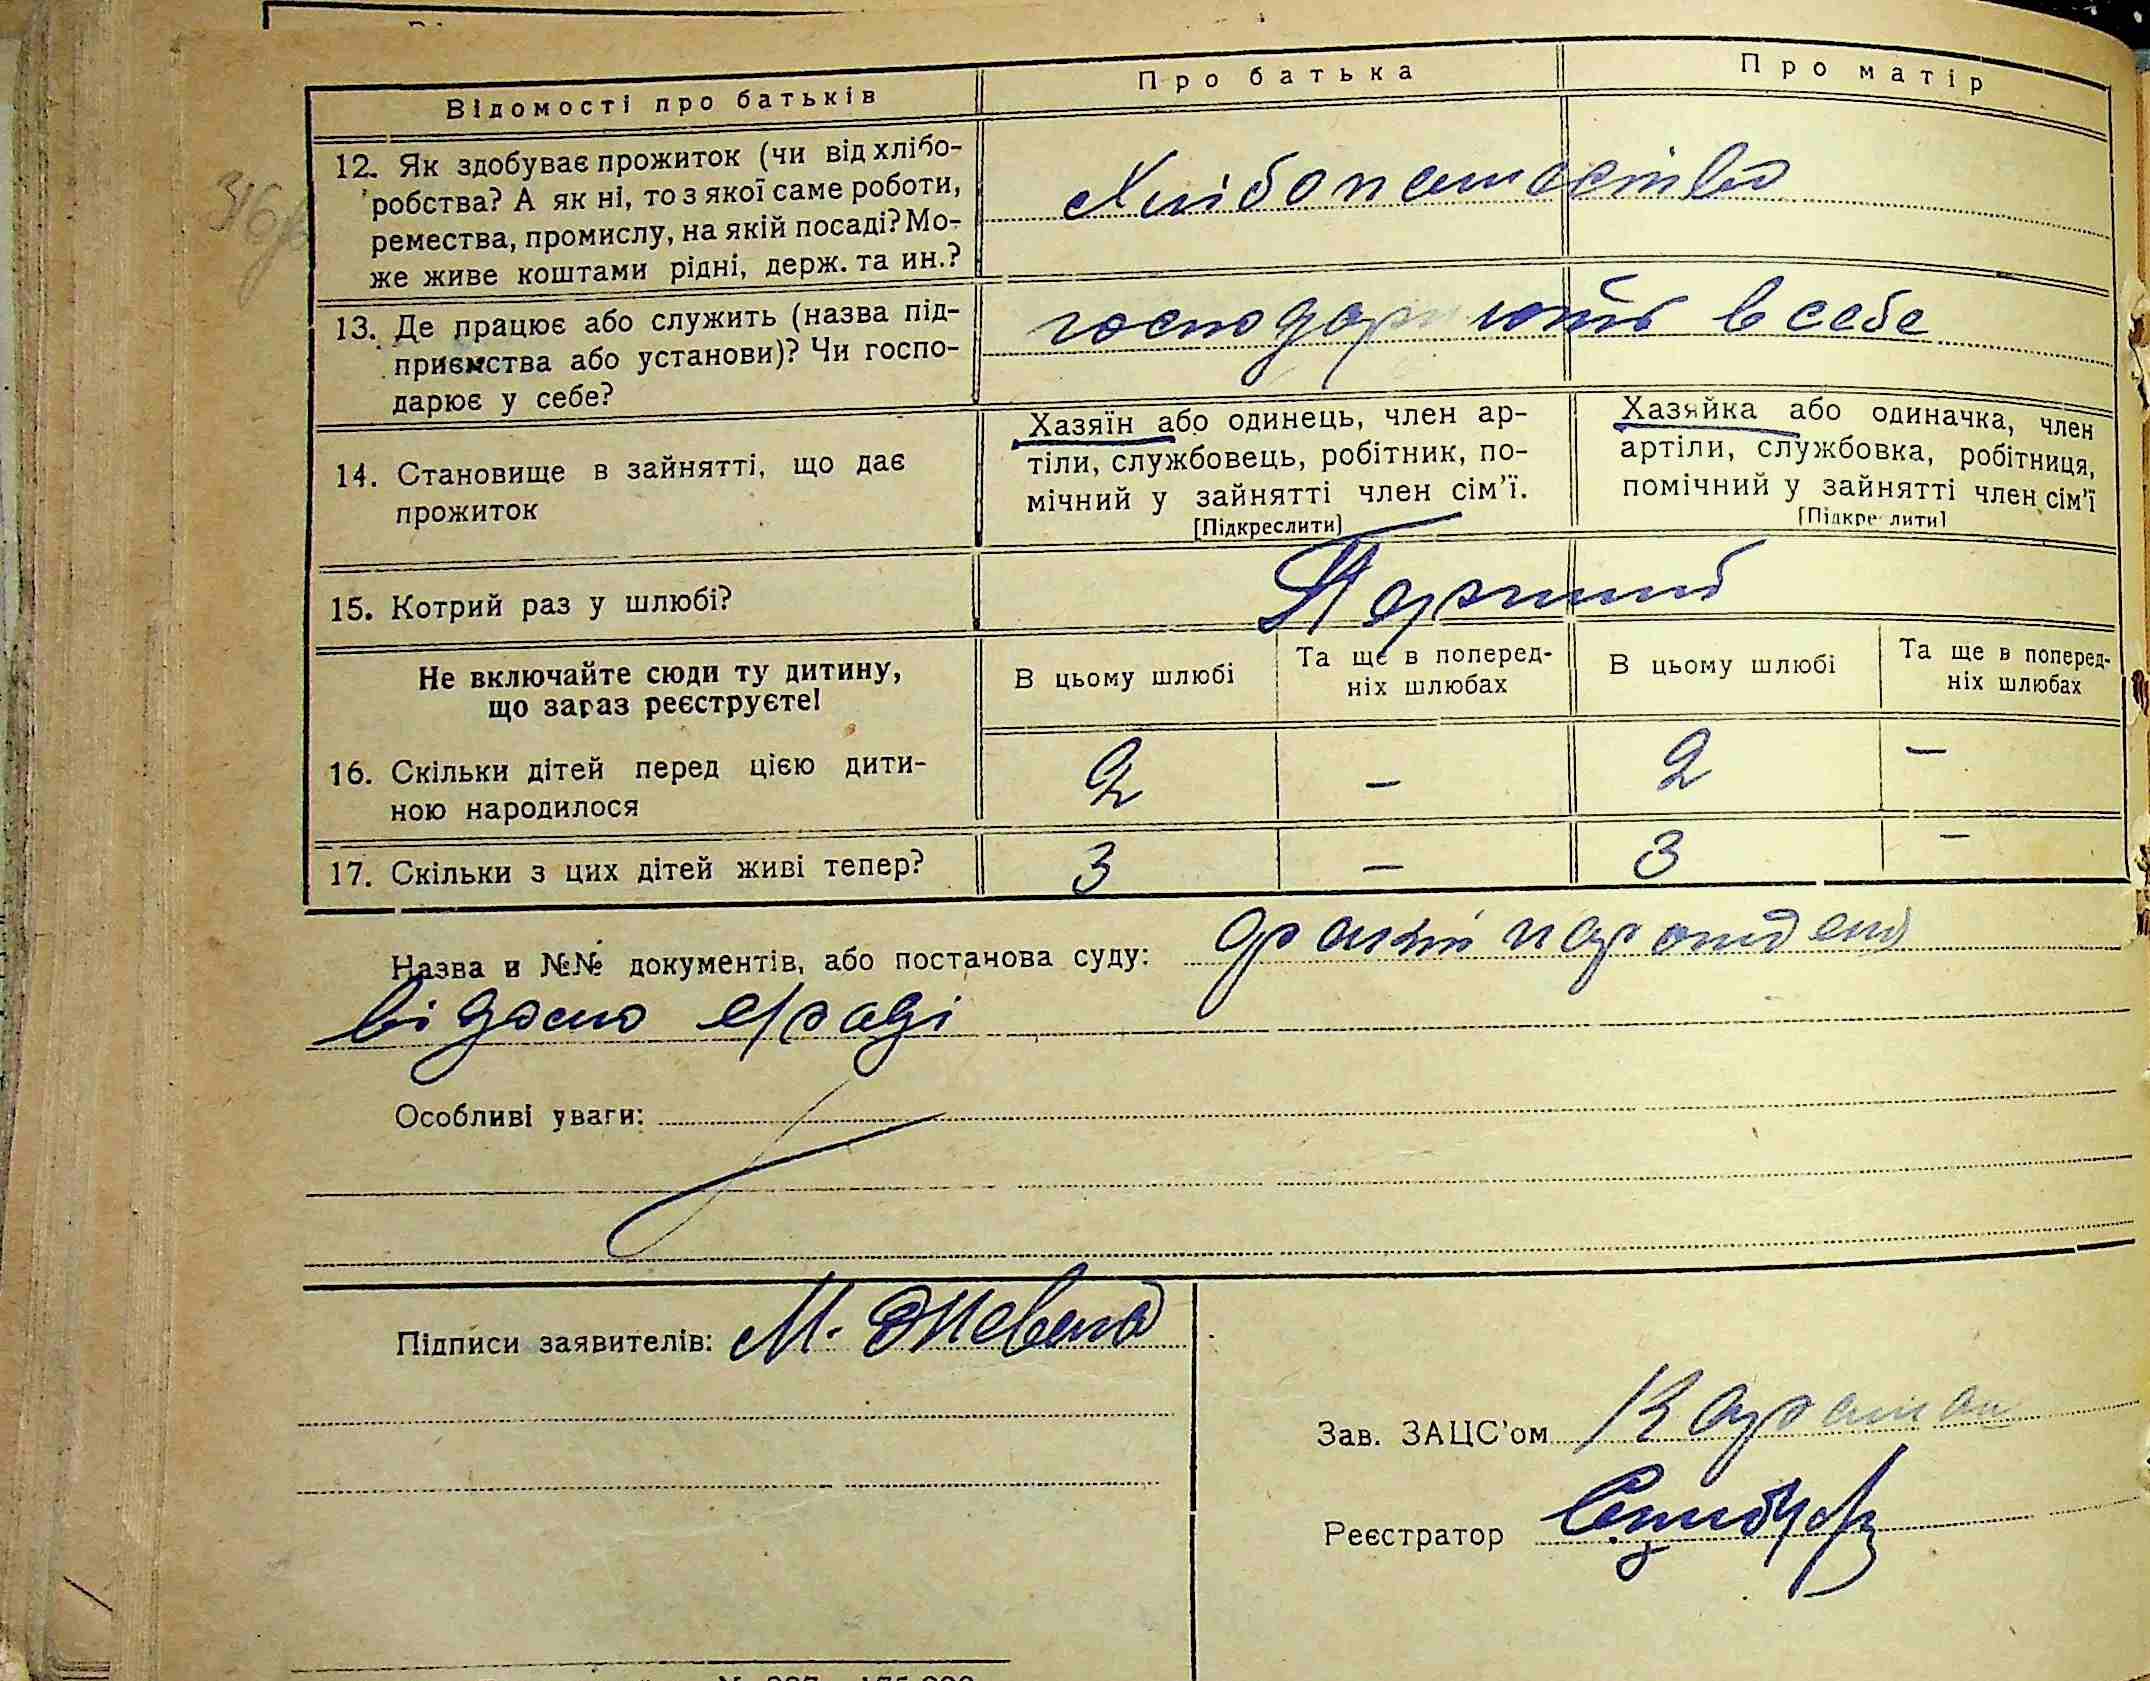 Відомості про батьків
Про батька
Про матір
316
12. Як здобуває прожиток (чи від хлібо-
робства? А як ні, то з якої саме роботи,
ремества, промислу, на якій посаді? Мо-
же живе коштами рідні, держ. та ин.?
Хлібопашество
13. Де працює або служить (назва під-
приємства або установи)? Чи госпо-
дарює у себе?
господарують в себе
14. Становище в зайнятті, що дає
прожиток
Хазяїн або одинець, член ар-
тіли, службовець, робітник, по-
мічний у зайнятті член сім'ї.
[Підкреслити]
Хазяйка або одиначка, член
артіли, службовка, робітниця,
помічний у зайнятті член сім'ї
[Підкреслити]
15. Котрий раз у шлюбі?
Перший
Не включайте сюди ту дитину,
що зараз реєструєте!
В цьому шлюбі
Та ще в поперед-
ніх шлюбах
В цьому шлюбі
Та ще в поперед-
ніх шлюбах
16. Скільки дітей перед цією дити-
ною народилося
2 - 2 -
17. Скільки з цих дітей живі тепер?
3 - 3 -
Назва и №№ документів, або постанова суду:
Особливі уваги:
Підписи заявителів: М.
Зав. ЗАЦС'ом Караман
Реєстратор